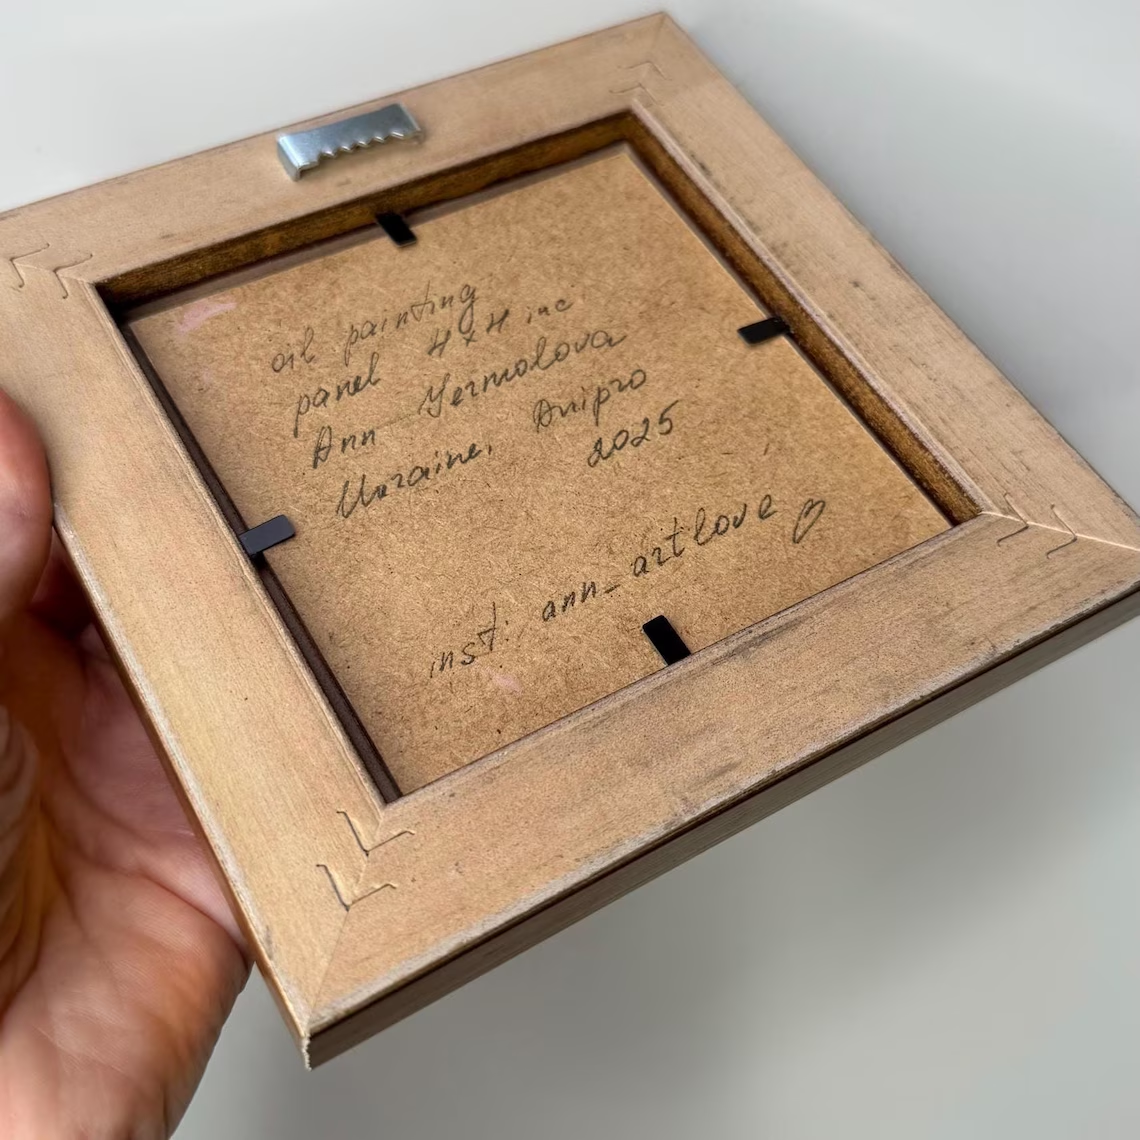 oil painting
panel 4x4 inc
Ann Yermolova
Ukraine, Dnipro
2025
inst: ann_artlove